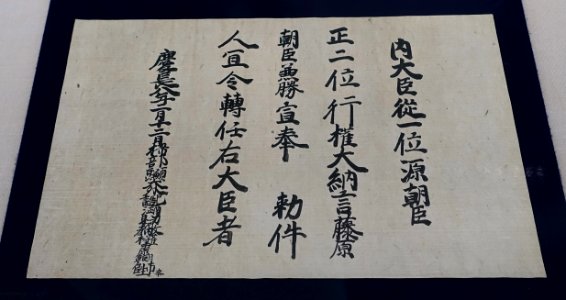 内大臣從一位源朝臣
正二位行權大納言藤原
朝臣兼勝宣奉　勅件
人宜令轉任右大臣者
慶長八年二月十二日掃部頭兼大外記